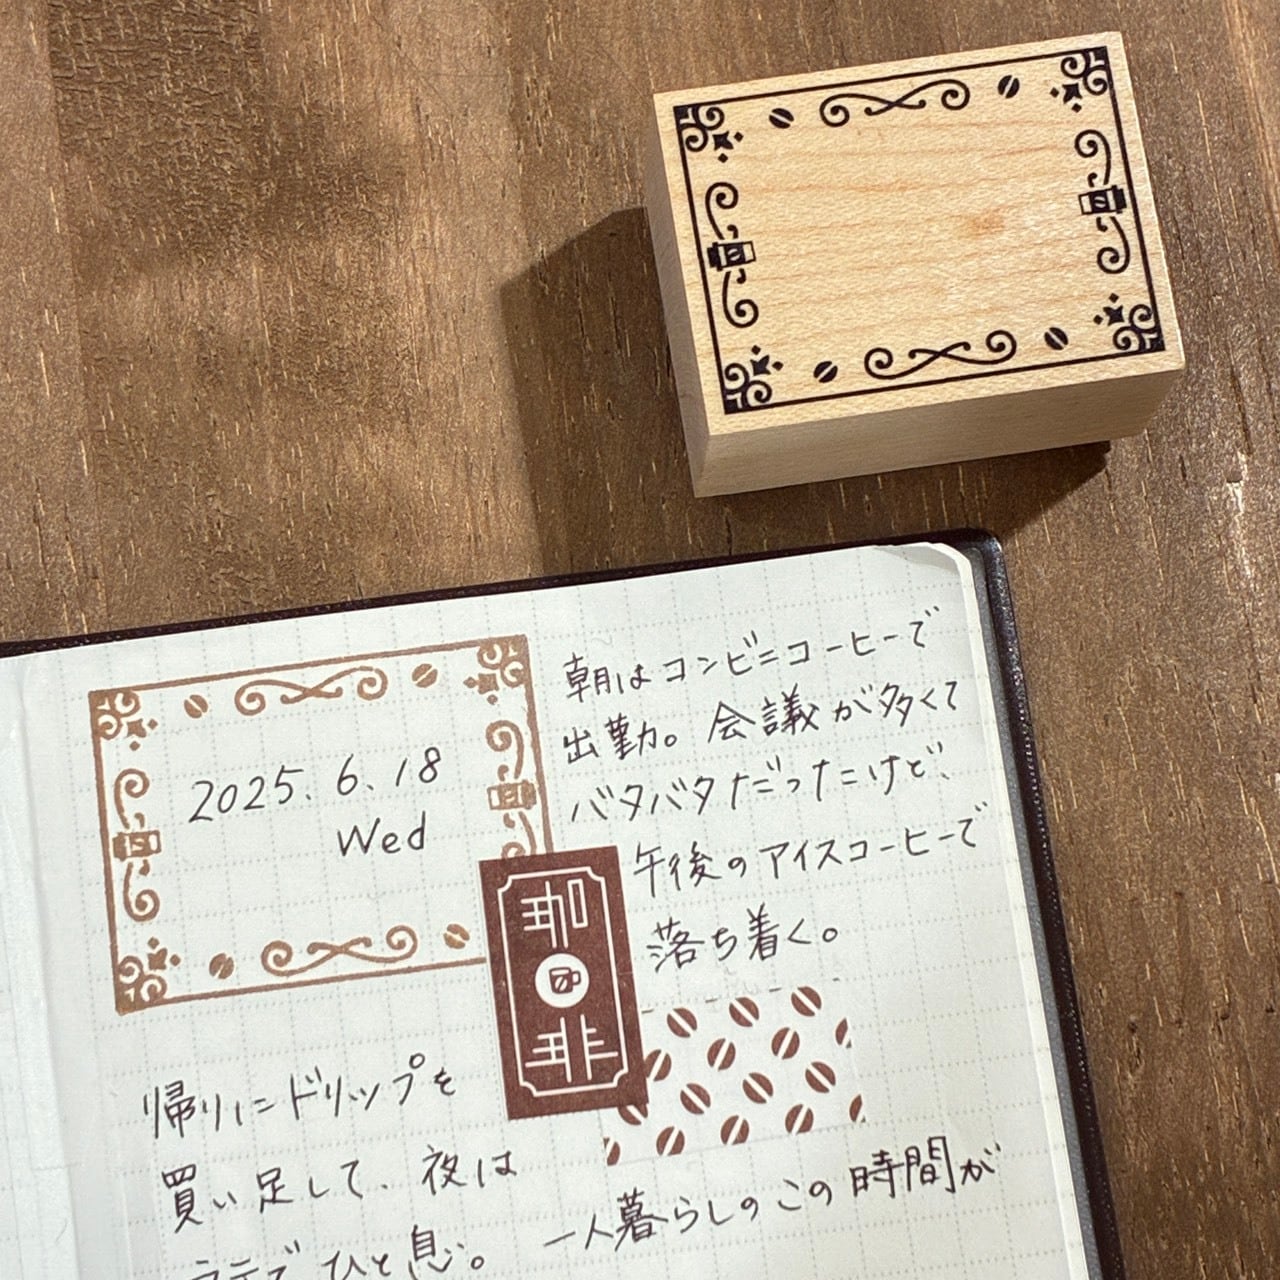 2025.6.18
Wed
朝はコンビニコーヒーで
出勤。会議が多くて
バタバタだったけど、
午後のアイスコーヒーで
落ち着く。
珈
琲
帰りにドリップを
買い足して、夜は
ラテでひと息。
一人暮らしのこの時間が